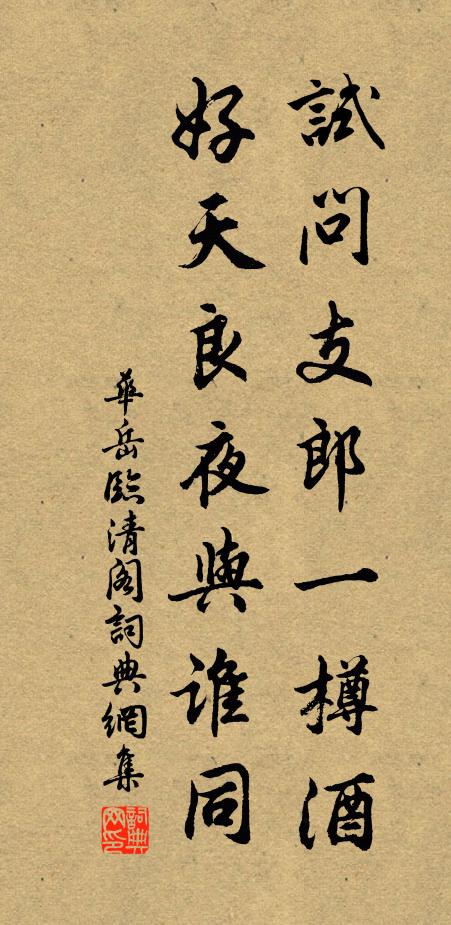 試問支郎一樽酒
好天良夜與誰同
華岳臨清閣詞典網集
詞典網印